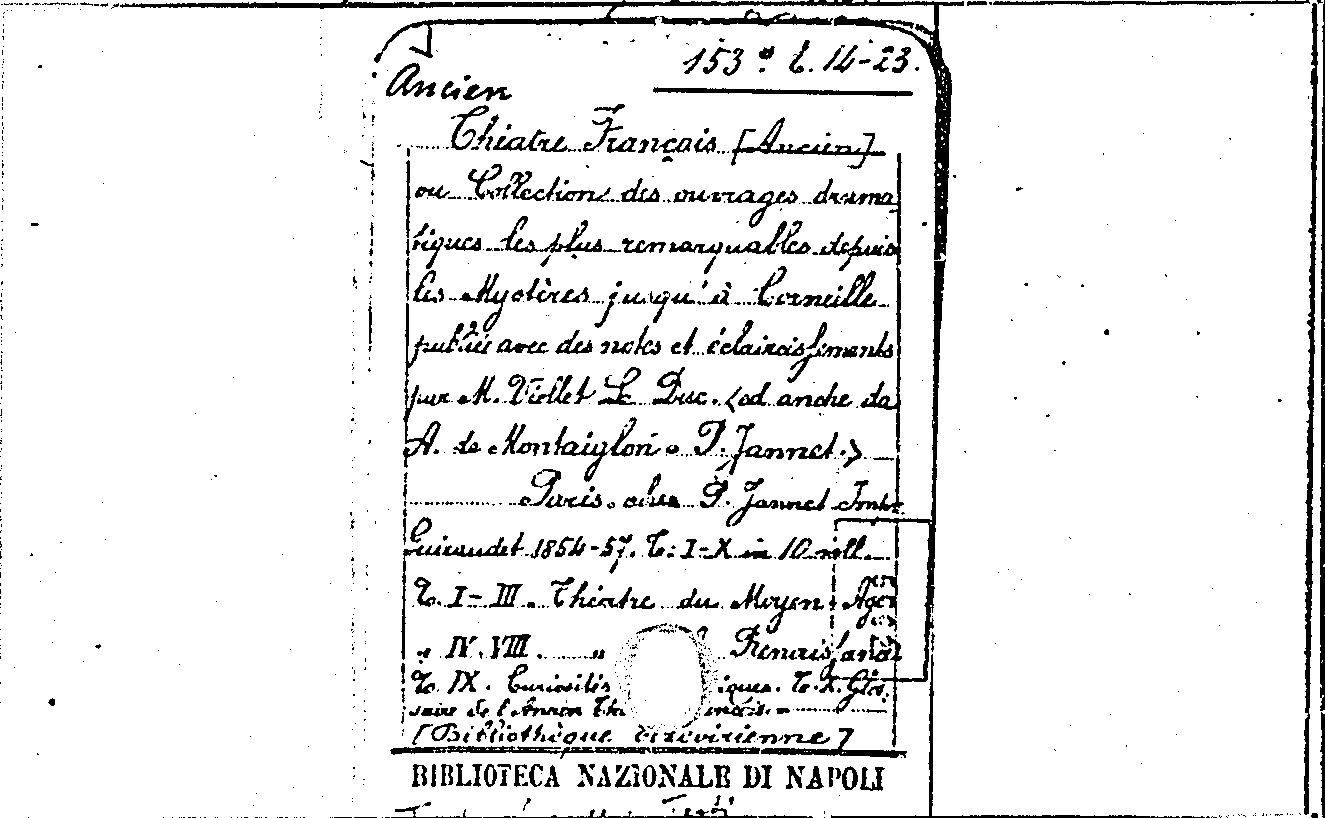 153° t. 14-23.
Ancien
Théatre Français [Ancien]
ou Collection des ouvrages drama
tiques les plus remarquables depuis
les Mystères jusqu'à Corneille
publié avec des notes et éclaircissements
par M. Viollet Le Duc. (ed anche da
A. de Montaiglon e P. Jannet.)
Paris. chez P. Jannet Impr.
Guiraudet 1854-57. T. I-X in 10 voll.
T. I-III. Théatre du Moyen-Age
" IV. VIII. " Renaissance
T. IX. Curiosités iques. T. X. Glos
saire de l'Ancien Thé
[Bibliothèque elzevirienne]
BIBLIOTECA NAZIONALE DI NAPOLI